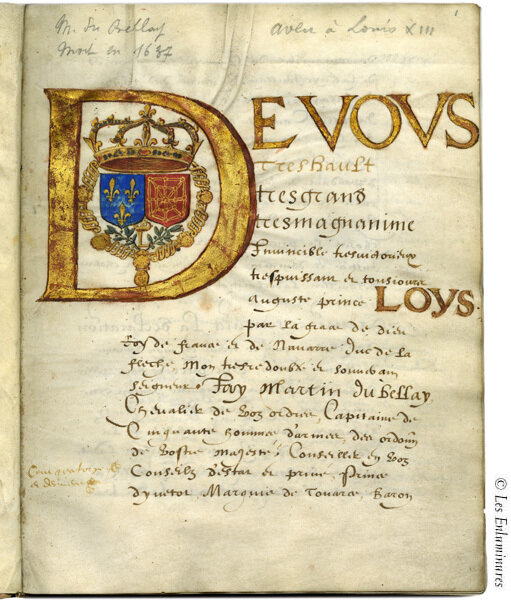 M. du Bellay
Mort en 1637
aveu à Louis XIII
1
DE VOVS
Treshault
tresgrand
tresmagnanime
Invincible tresvictorieux
trespuissant et tousiours
auguste prince LOYS
par la grace de dieu
roy de france et de Navarre duc de la
fleche, mon tresredoubté et souverain
seigneur, Jay Martin du Bellay,
Chevalier de voz ordres, Capitaine de
Cinquante hommes d'armes, des ordonn
de vostre majesté, Conseiller en voz
Conseilz destat et privé, Prince
dyvetot, Marquis de Touarce, Baron
© Les Enluminures